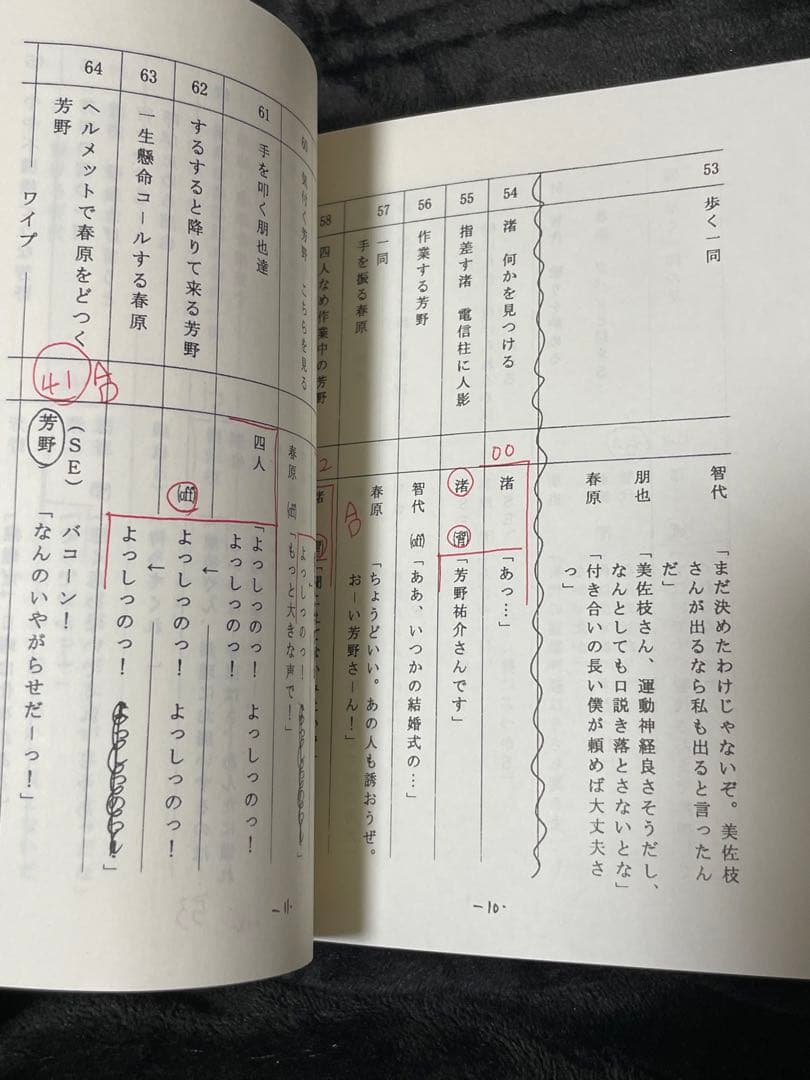 53
歩く一同
智代
「まだ決めたわけじゃないぞ。美佐枝
さんが出るなら私も出ると言ったん
だ」
朋也
「美佐枝さん、運動神経良さそうだし、
なんとしても口説き落とさないとな」
春原
「付き合いの長い僕が頼めば大丈夫さ
っ」
54
渚 何かを見つける
00
渚
「あっ…」
55
指差す渚 電信柱に人影
渚
「芳野祐介さんです」
56
作業する芳野
智代 (off)
「ああ、いつかの結婚式の…」
57
一同
手を振る春原
春原
「ちょうどいい。あの人も誘おうぜ。
おーい芳野さーん！」
58
四人なめ作業中の芳野
-10-
60
気付く芳野 こちらを見る
春原 (off)
「もっと大きな声で！」
61
手を叩く朋也達
四人
「よっしつのっ！ よっしつのっ！
62
するすると降りて来る芳野
(off)
よっしつのっ！ よっしつのっ！
63
一生懸命コールする春原
よっしつのっ！ 」
64
ヘルメットで春原をどつく
芳野
41
(SE)
バコーン！
芳野
「なんのいやがらせだーっ！」
ワイプ
-11-